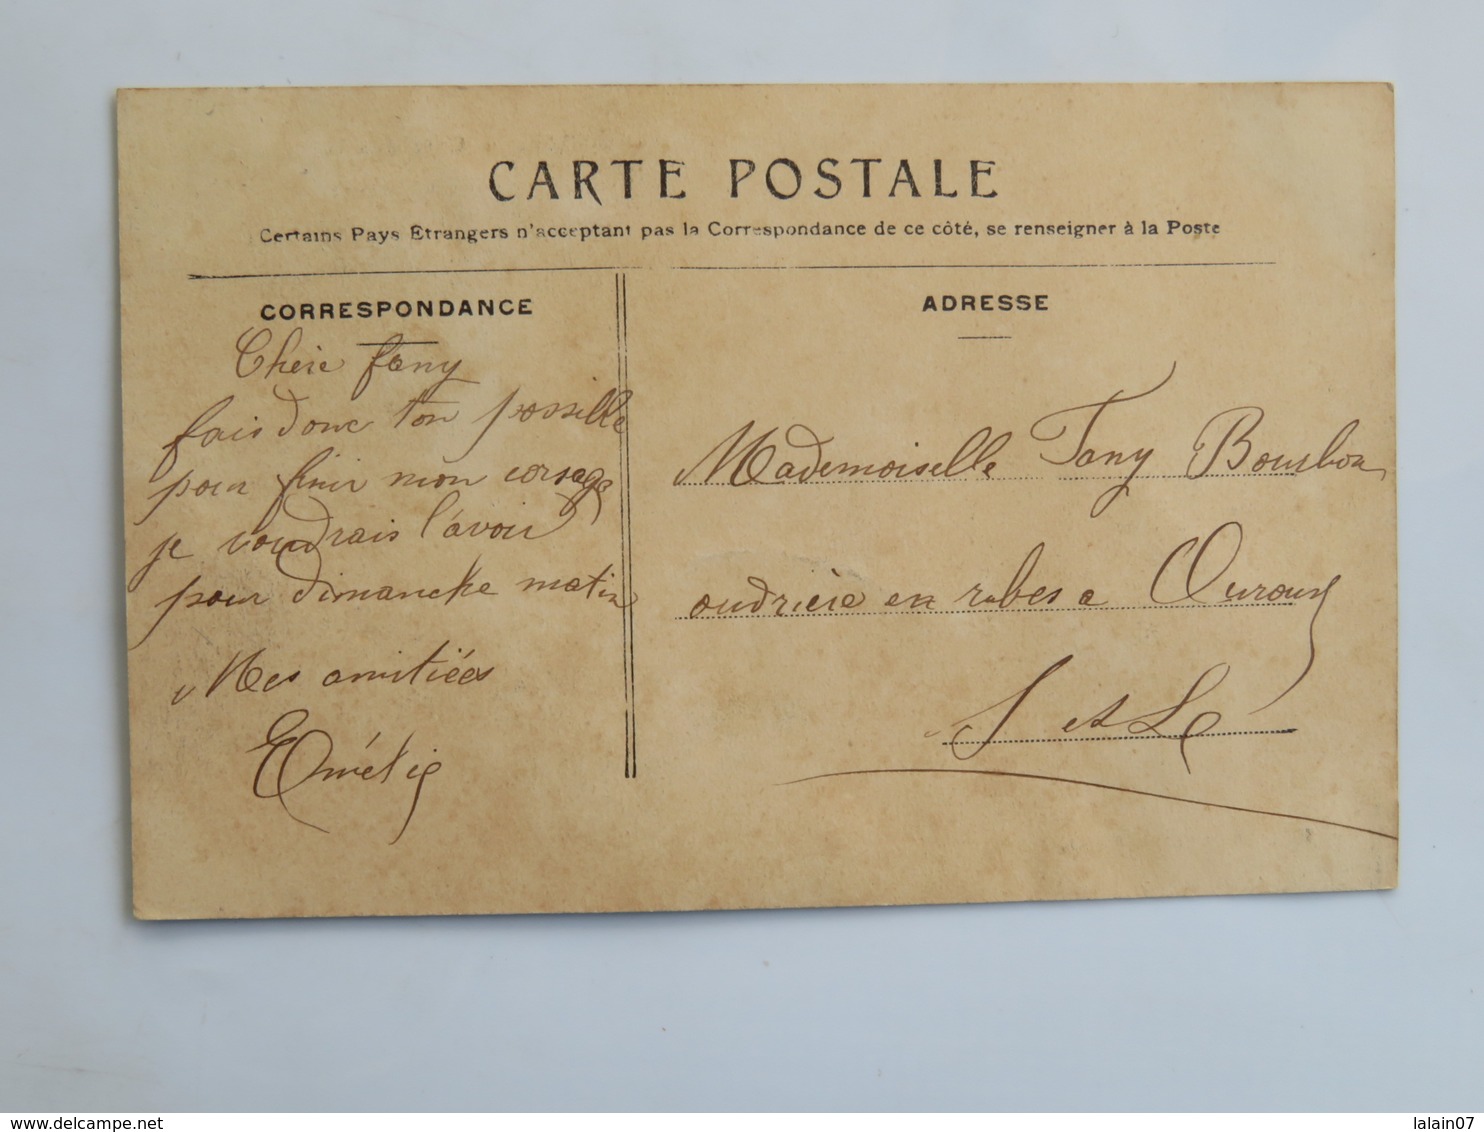 CARTE POSTALE
Certains Pays Etrangers n'acceptant pas la Correspondance de ce côté, se renseigner à la Poste
CORRESPONDANCE
Chère fany
fais donc ton possible
pour finir mon corsage
je voudrais l'avoir
pour dimanche matin
Mes amitiées
Amélie
ADRESSE
Mademoiselle Fany Bourbon
ouvrière en robes a Ouroux
S et L
delcampe.net
lalain07